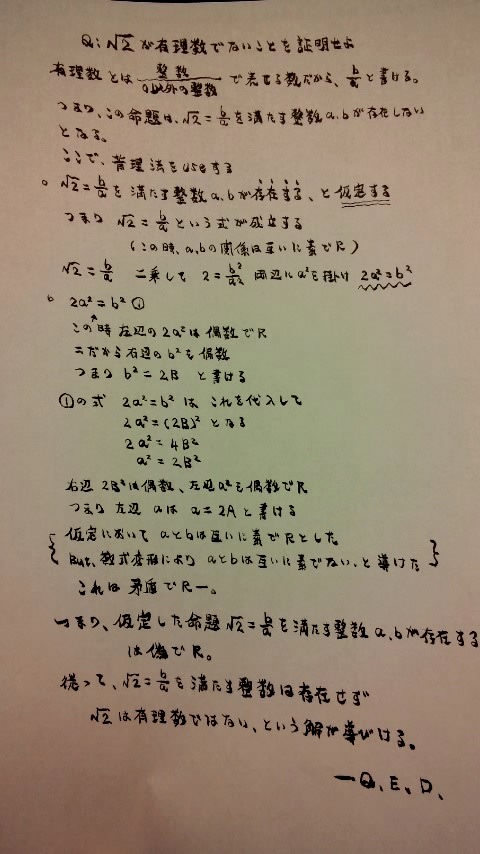 Q:√2が有理数でないことを証明せよ
有理数とは 整数/0以外の整数 で表せる数だから、b/aと書ける。
つまり、この命題は、√2=b/aを満たす整数a,bが存在しない
となる。
ここで、背理法をuseする
○ √2=b/aを満たす整数a,bが存在する、と仮定する
つまり √2=b/aという式が成立する
(この時、a,bの関係は互いに素でR)
√2=b/a 二乗して 2=b²/a² 両辺にa²を掛け 2a²=b²
○ 2a²=b² ①
この時 左辺の2a²は偶数でR
だから右辺のb²も偶数
つまり b²=2B と書ける
①の式 2a²=b² は これを代入して
2a²=(2B)² となる
2a²=4B²
a²=2B²
右辺 2B²は偶数、左辺a²も偶数でR
つまり 左辺 aは a=2Aと書ける
仮定において aとbは互いに素でRとした
But,数式変形により aとbは互いに素でない、と導けた
これは矛盾でRー。
つまり、仮定した命題√2=b/aを満たす整数a,bが存在する
は偽でR。
従って、√2=b/aを満たす整数は存在せず
√2は有理数ではない、という解が導びける。
ーQ.E.D.